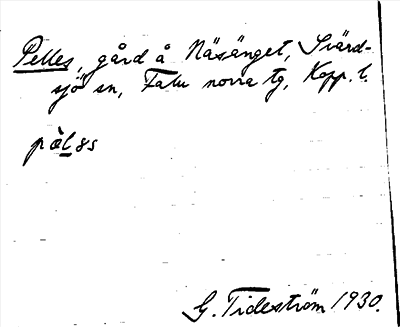 Pelles, gård å Näsänget, Svärd-
sjö sn, Falu norra tg, Kopp. l.
G. Tideström 1930.